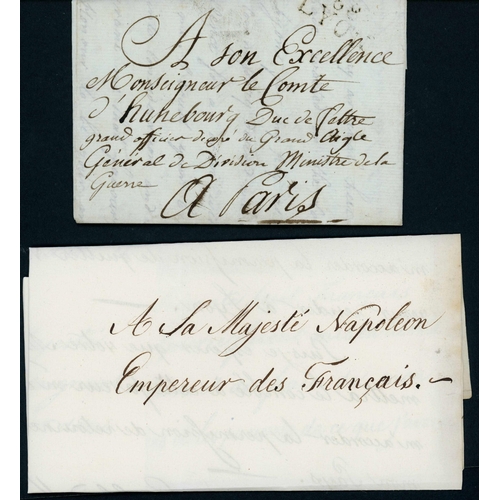 LYO
A son Excellence
Monseigneur le Comte
d'hunebourg Duc de feltre
grand officier du Grand Aigle
Général de Division Ministre de la
Guerre
A Paris
A Sa Majesté Napoleon
Empereur des Français.